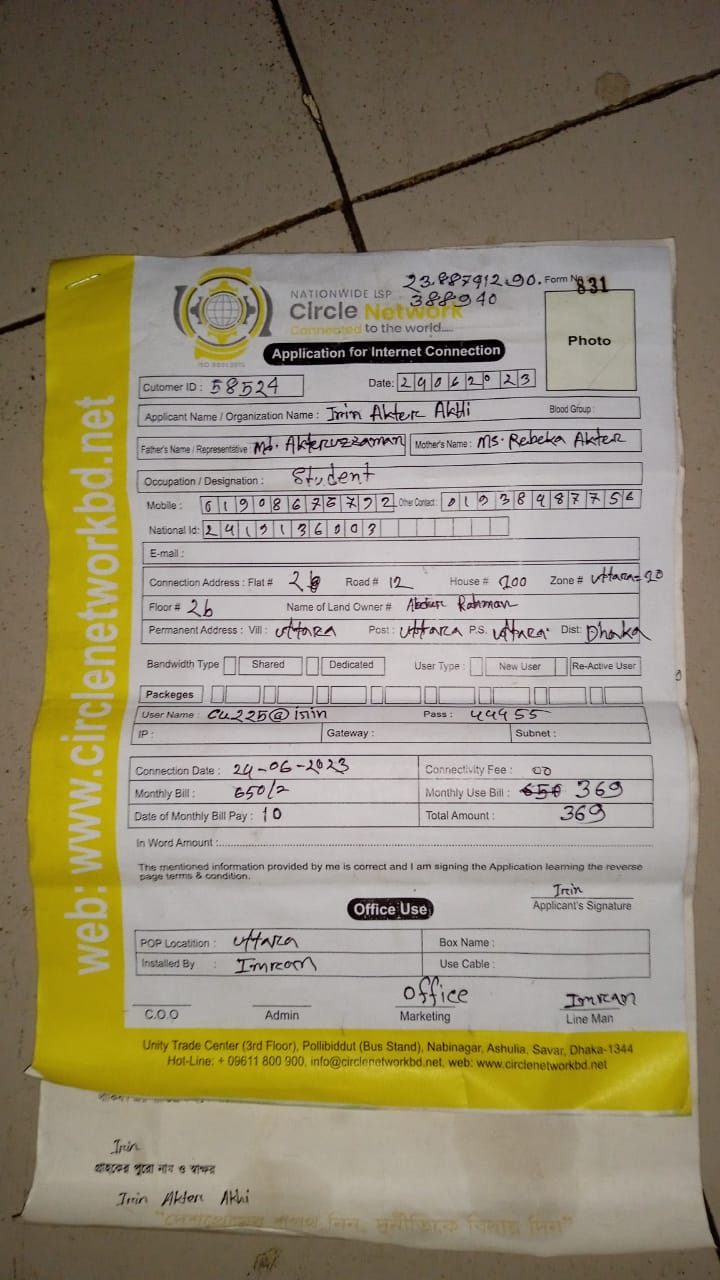 web: www.circlenetworkbd.net
23.887912.90.
388940
Form No
831
NATIONWIDE ISP
Circle Network
Connected to the world....
ISO 9001:2015
Photo
Application for Internet Connection
Cutomer ID : 58524 Date: 29062023
Applicant Name / Organization Name : Irin Akter Akhi Blood Group :
Father's Name / Representative : Md. Akteruzzaman Mother's Name : Ms. Rebeka Akter
Occupation / Designation : Student
Mobile : Other Contact : 01938987756
National Id: 2419136003
E-mail :
Connection Address : Flat # Road # 12 House # 100 Zone # Uttara-10
Floor # 2b Name of Land Owner # Rahman
Permanent Address : Vill : Uttara Post : Uttara P.S. Uttara Dist: Dhaka
Bandwidth Type Shared Dedicated User Type : New User Re-Active User
Packeges
User Name : Cu225@irin Pass : 44955
IP : Gateway : Subnet :
Connection Date : 24-06-2023 Connectivity Fee : 00
Monthly Bill : 650/= Monthly Use Bill : 650 369
Date of Monthly Bill Pay : 10 Total Amount : 369
In Word Amount :
The mentioned information provided by me is correct and I am signing the Application learning the reverse
page terms & condition.
Irin
Applicant's Signature
Office Use
POP Locatition : Uttara Box Name :
Installed By : Imran Use Cable :
Office Imran
C.O.O Admin Marketing Line Man
Unity Trade Center (3rd Floor), Pollibiddut (Bus Stand), Nabinagar, Ashulia, Savar, Dhaka-1344
Hot-Line: + 09611 800 900, info@circlenetworkbd.net, web: www.circlenetworkbd.net
Irin
গ্রাহকের পুরো নাম ও স্বাক্ষর
Irin Akter Akhi
"দেশপ্রেমের শপথ নিন, দুর্নীতিকে বিদায় দিন"